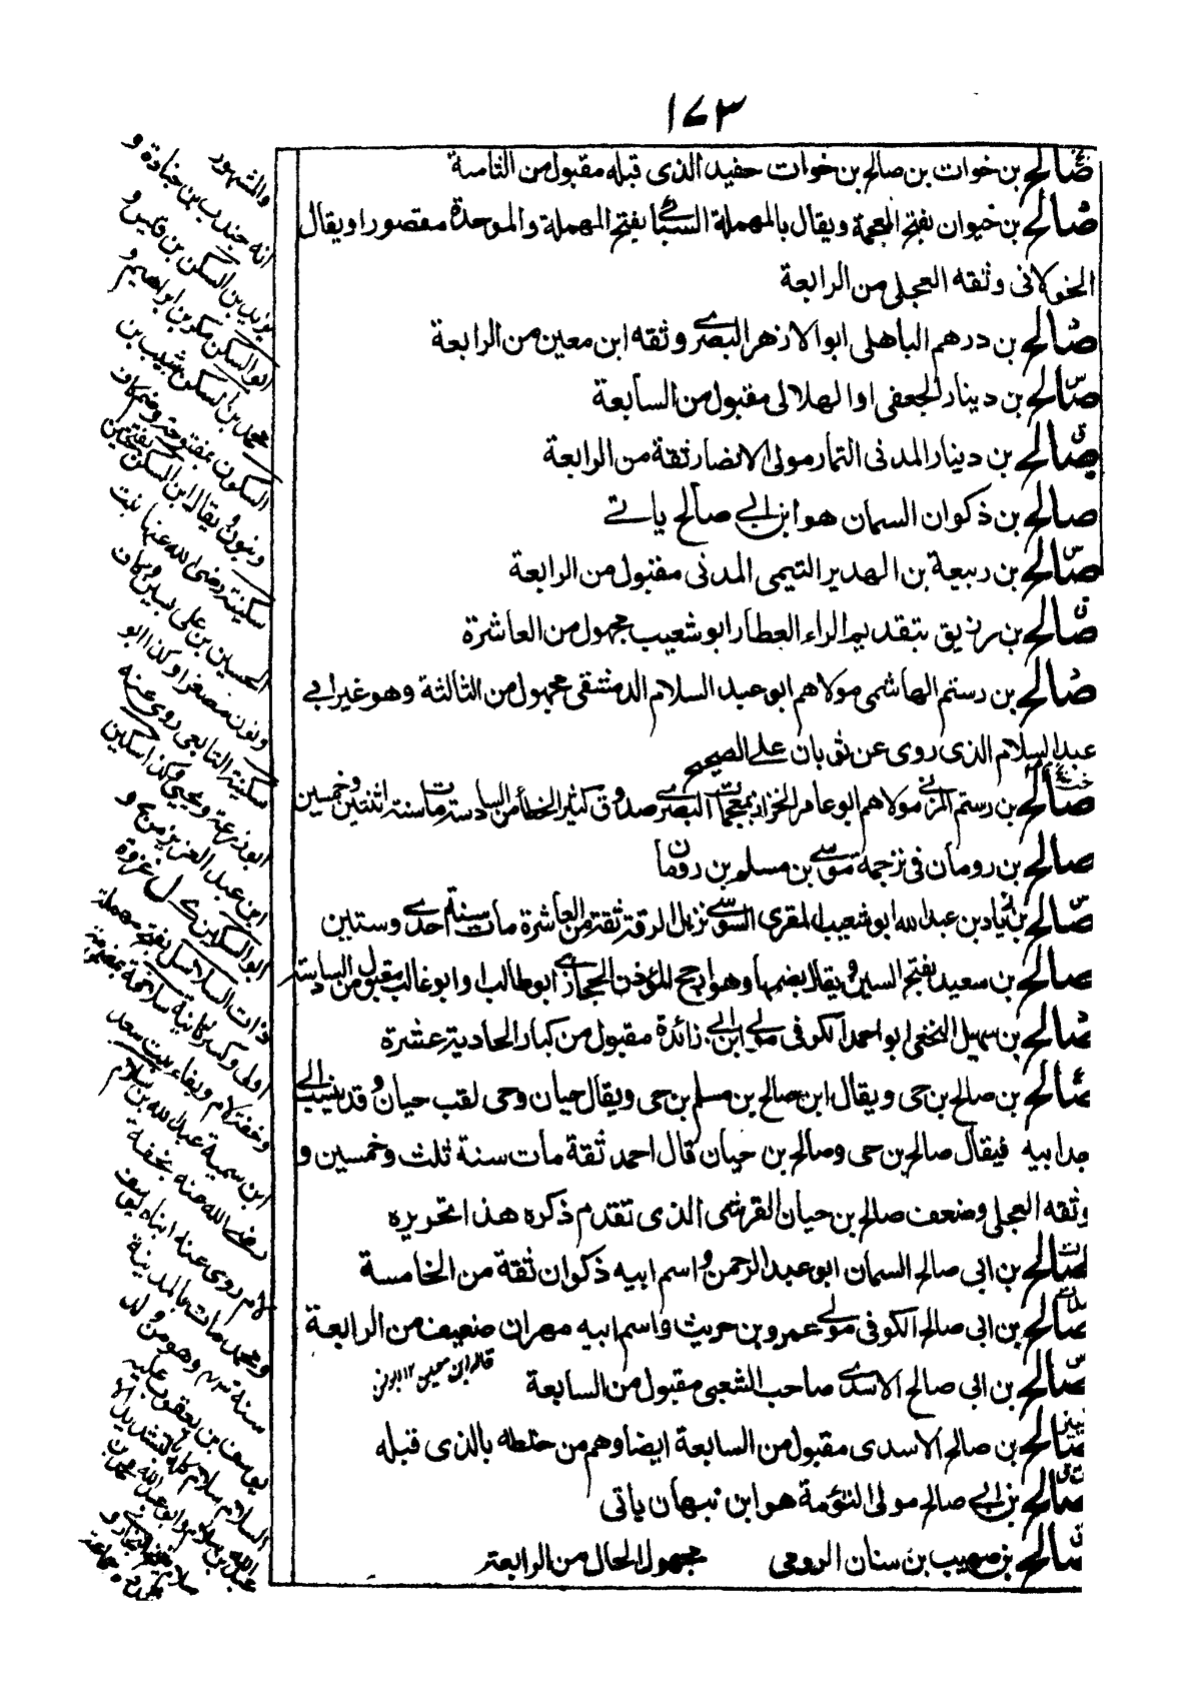 ١٧٣
صالح بن خوات بن صالح بن خوات حفيد الذى قبله مقبول من الثامنة
صالح بن خيوان بفتح المعجمة ويقال بالمهملة السبائى بفتح المهملة والموحدة مقصورا ويقال
الخولانى وثقه العجلى من الرابعة
صالح بن درهم الباهلى ابوالازهر البصرى وثقه ابن معين من الرابعة
صالح بن دينار الجعفى او الهلالى مقبول من السابعة
صالح بن دينار المدنى التمار مولى الانصار ثقة من الرابعة
صالح بن ذكوان السمان هو ابن ابى صالح ياتى
صالح بن ربيعة بن الهدير التيمى المدنى مقبول من الرابعة
صالح بن رزيق بتقديم الراء العطار ابو شعيب مجهول من العاشرة
صالح بن رستم الهاشمى مولاهم ابو عبد السلام الدمشقى مجهول من الثالثة وهو غير ابى
عبد السلام الذى روى عن ثوبان على الصحيح
صالح بن رستم المزنى مولاهم ابو عامر الخزاز بمعجمات البصرى صدوق كثير الخطأ من السادسة مات سنة اثنتين وخمسين
صالح بن رومان فى ترجمة موسى بن مسلم بن رومان
صالح بن زياد بن عبدالله ابو شعيب المقرى السوسى نزيل الرقة ثقة من العاشرة مات سنة احدى وستين
صالح بن سعيد بفتح السين ويقال بضمها وهو ارجح المؤذن الحجازى ابو طالب او ابو غالب مقبول من السادسة
صالح بن سهيل النخعى ابو احمد الكوفى مولى ابن ابى زائدة مقبول من كبار الحادية عشرة
صالح بن صالح بن حى ويقال ابن صالح بن مسلم بن حى ويقال حيان وحى لقب حيان وقد ينسب الى
جد ابيه فيقال صالح بن حى وصالح بن حيان قال احمد ثقة مات سنة ثلث وخمسين و
وثقه العجلى وضعف صالح بن حيان القرشى الذى تقدم ذكره هذا تحريره
صالح بن ابى صالح السمان ابو عبد الرحمن واسم ابيه ذكوان ثقة من الخامسة
صالح بن ابى صالح الكوفى مولى عمرو بن حريث واسم ابيه مهران ضعيف من الرابعة
صالح بن ابى صالح الاسدى صاحب الشعبى مقبول من السابعة قاله ابن معين ١٢
صالح بن صالح الاسدى مقبول من السابعة ايضا وهم من خلطه بالذى قبله
صالح بن ابى صالح مولى التؤمة هو ابن نبهان ياتى
صالح بن صهيب بن سنان الرومى مجهول الحال من الرابعة
والمشهور
انه جندب بن جنادة و
يزيد بن السكن بن قيس و
ابو السكن مكى بن ابراهيم و
محمد بن السكن شبيب بن
السكون بمفتوحة وضم كاف
وبنون ويقال ابن السكن بفتحتين
سكينة رضى الله عنها بنت
الحسين بن على بسين وكاف
ونون مصغرا وكذا ابو
سكينة التابعى روى عنه
ابو زرعة ويحيى وكذا سكين
ابن عبد العزيز من ح و
ابو السكين ك ل غزوة
ذات السلاسل بفتح مهملة
اولى وكسر ثانية
وخفة لام وبفاء بنت سعد
ابن سمية عبد الله بن سلام
رضى الله عنه بخفة
لام روى عنه ابناه يوسف
ومحمد مات بالمدينة
سنة وهو من ولد
يوسف بن يعقوب عليه
السلام سلام كله بالتشديد الا
عبد الله بن سلام وابو عبد الله محمد بن
سلام